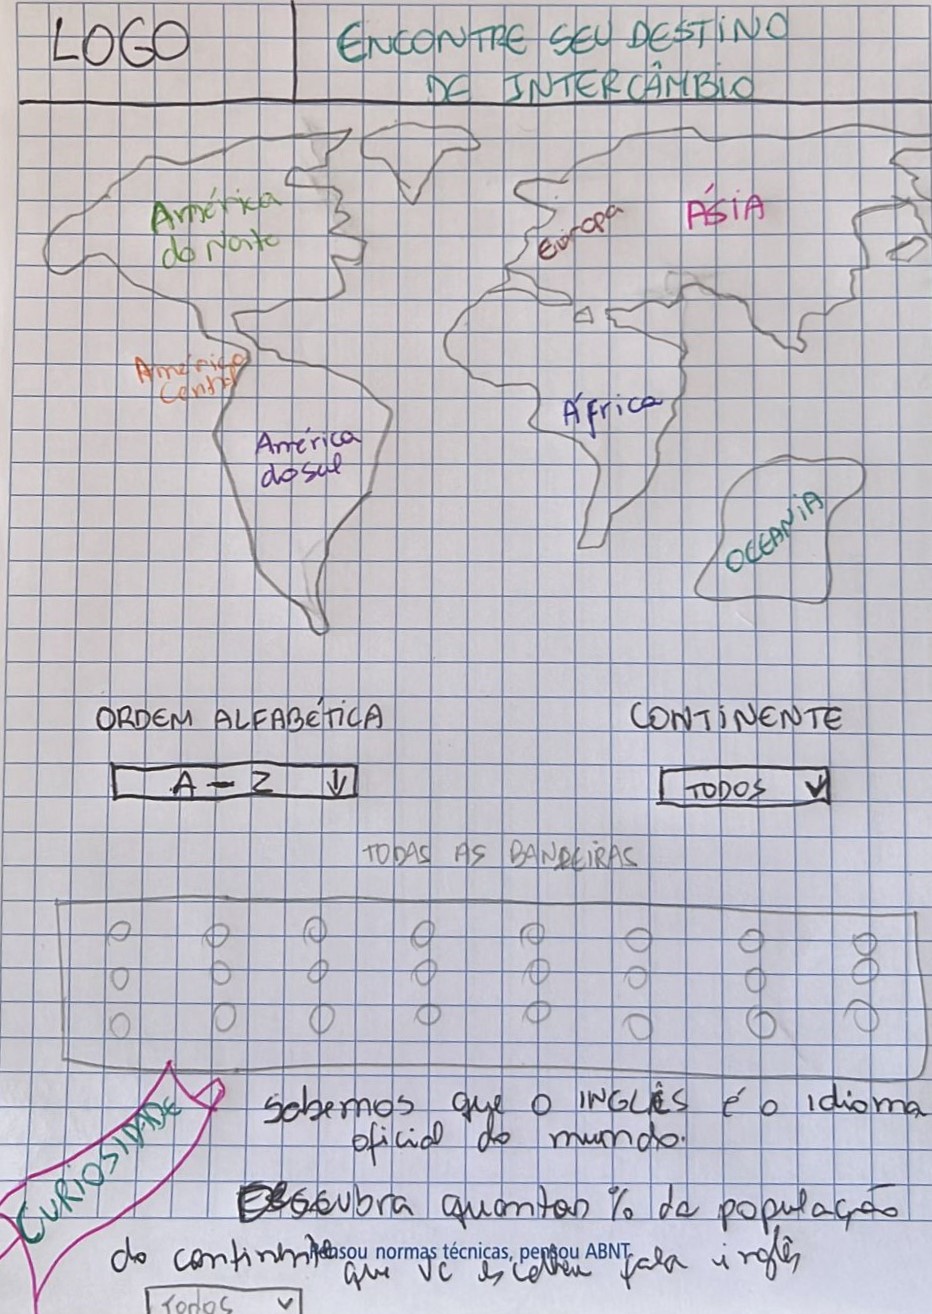 LOGO
ENCONTRE SEU DESTINO
DE INTERCÂMBIO
América
do Norte
Europa
ÁSIA
América
Central
América
do sul
África
OCEANIA
ORDEM ALFABÉTICA
CONTINENTE
A - Z
TODOS
TODAS AS BANDEIRAS
CURIOSIDADE
Sabemos que o INGLÊS é o idioma
oficial do mundo.
Descubra quantos % da população
do continente
pensou normas técnicas, pensou ABNT
que vc escolheu fala inglês
Todos